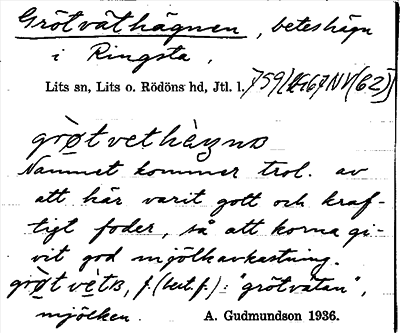 Grötväthägnen, beteshägn
i Ringsta,
Lits sn, Lits o. Rödöns hd, Jtl. l.
Namnet kommer trol. av
att här varit gott och kraf-
tigt foder, så att korna gi-
vit god mjölkavkastning.
f. (best. f.): "grötvätan",
mjölken. A. Gudmundson 1936.